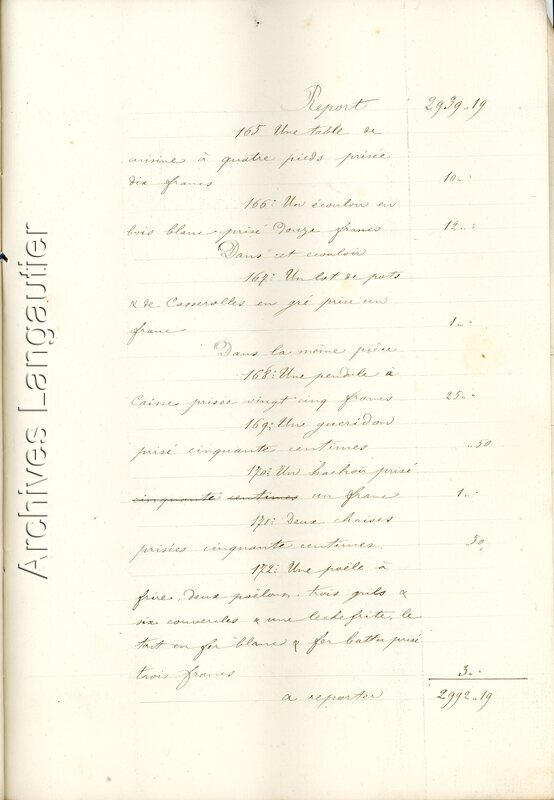 Report 2939..19
165 Une table de
cuisine à quatre pieds prisée
dix francs 10..
166: Un écouloir en
bois blanc prisé douze francs 12..
Dans cet écouloir
167: Un lot de pots
& de Casserolles en gré prisé un
franc 1..
Dans la même pièce
168: Une pendule à
Caisse prisée vingt cinq francs 25..
169: Un gueridon
prisé cinquante centimes ..50
170: Un hachoir prisé
cinquante centimes un franc 1..
171: Deux chaises
prisées cinquante centimes. .50
172: Une poële à
frire, deux poëlons, trois grils &
six couvercles & une lechefrite, le
tout en fer blanc & fer battu prisé
trois francs 3..
a reporter 2992..19
Archives Langautier